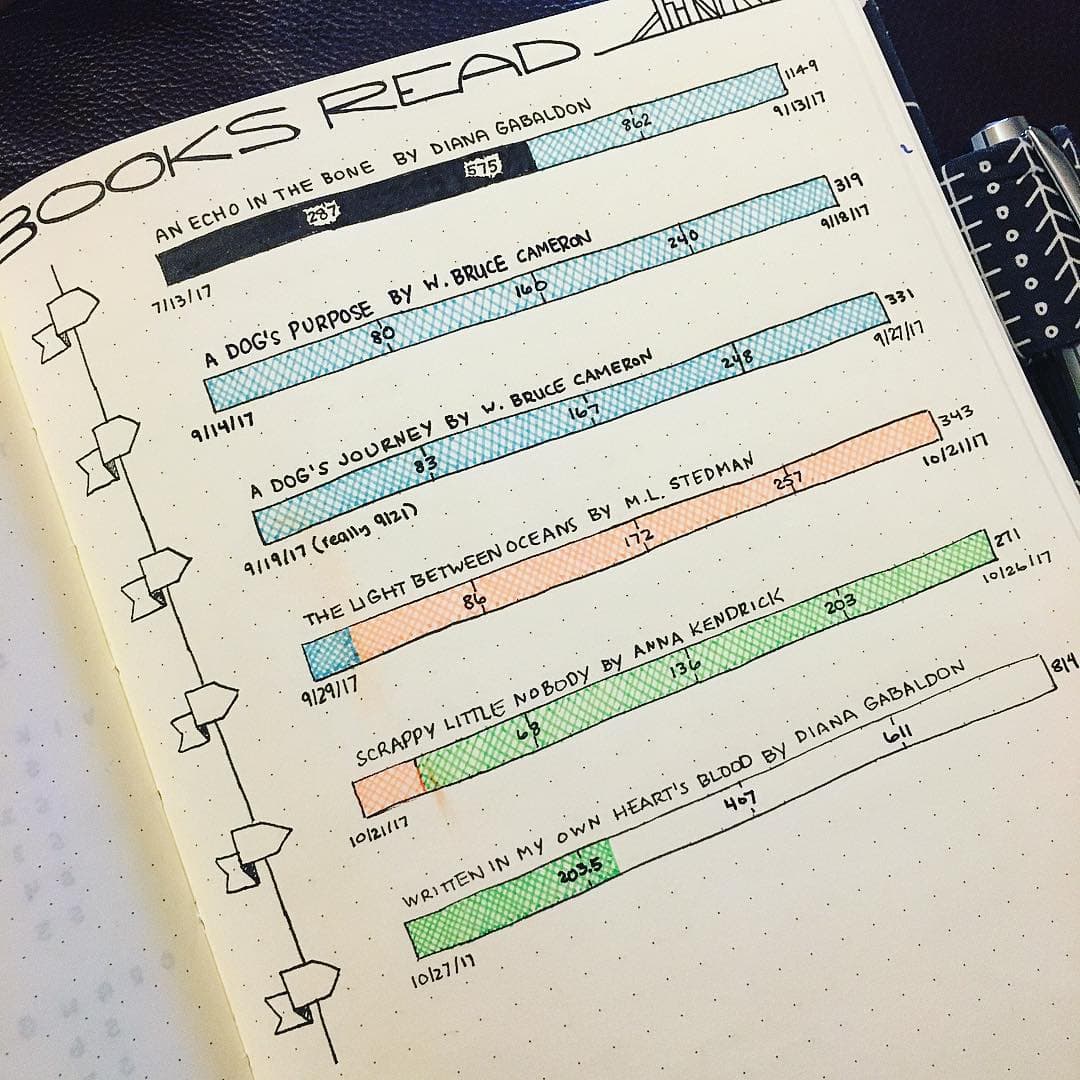 BOOKS READ
AN ECHO IN THE BONE BY DIANA GABALDON
287 575 862 1149
7/13/17 9/13/17
A DOG'S PURPOSE BY W. BRUCE CAMERON
80 160 240 319
9/14/17 9/18/17
A DOG'S JOURNEY BY W. BRUCE CAMERON
83 167 248 331
9/19/17 (really 9/21) 9/27/17
THE LIGHT BETWEEN OCEANS BY M.L. STEDMAN
86 172 257 343
9/29/17 10/21/17
SCRAPPY LITTLE NOBODY BY ANNA KENDRICK
68 136 203 271
10/21/17 10/26/17
WRITTEN IN MY OWN HEART'S BLOOD BY DIANA GABALDON
203.5 407 611 814
10/27/17